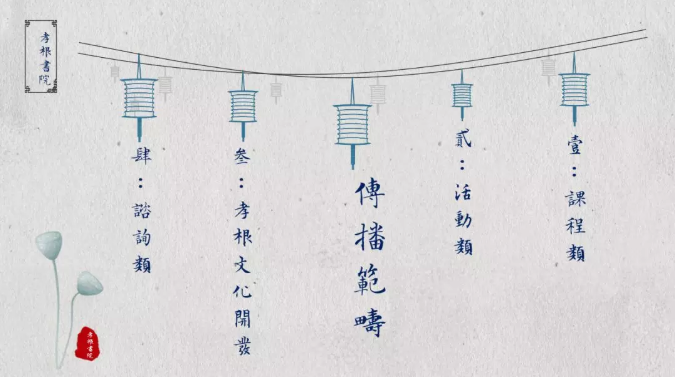 孝根書院
壹：課程類
貳：活動類
傳播範疇
叁：孝根文化開發
肆：諮詢類
孝根書院